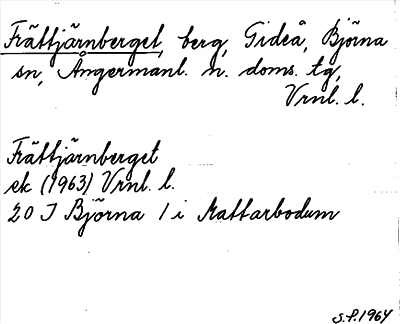 Frättjärnberget, berg, Gideå, Björna
sn, Ångermanl. n. doms. tg,
Vrnl. l.
Frättjärnberget
ek (1963) Vrnl. l.
20 I Björna 1 i Mattarbodum
S.P. 1964